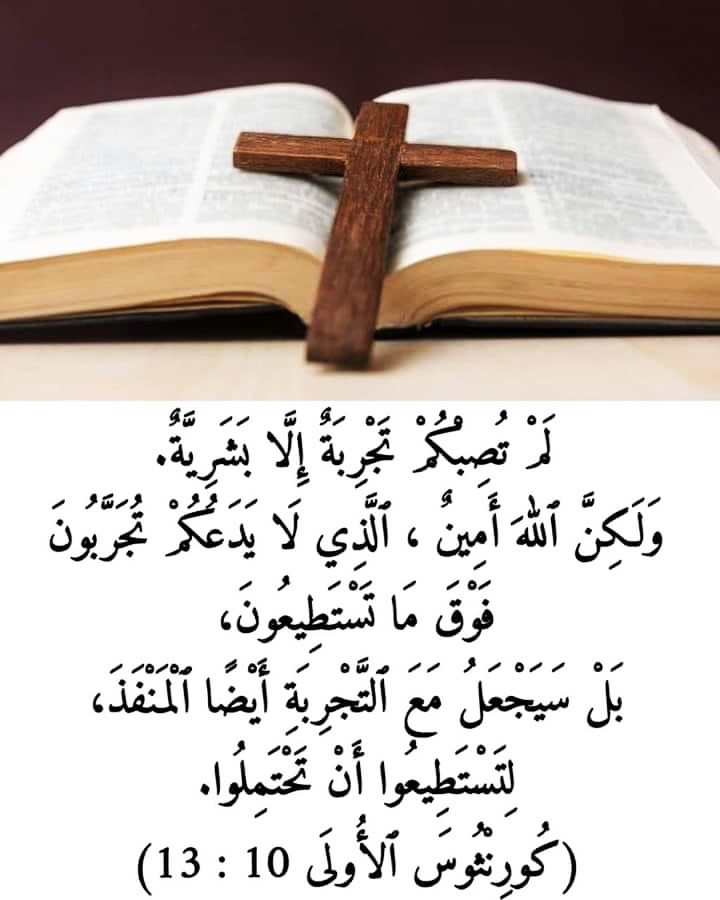 لَمْ تُصِبْكُمْ تَجْرِبَةٌ إِلَّا بَشَرِيَّةٌ.
وَلَكِنَّ ٱللهَ أَمِينٌ ، ٱلَّذِي لَا يَدَعُكُمْ تُجَرَّبُونَ
فَوْقَ مَا تَسْتَطِيعُونَ،
بَلْ سَيَجْعَلُ مَعَ ٱلتَّجْرِبَةِ أَيْضًا ٱلْمَنْفَذَ،
لِتَسْتَطِيعُوا أَنْ تَحْتَمِلُوا.
(كُورِنْثُوسَ ٱلأُولَى 10 : 13)